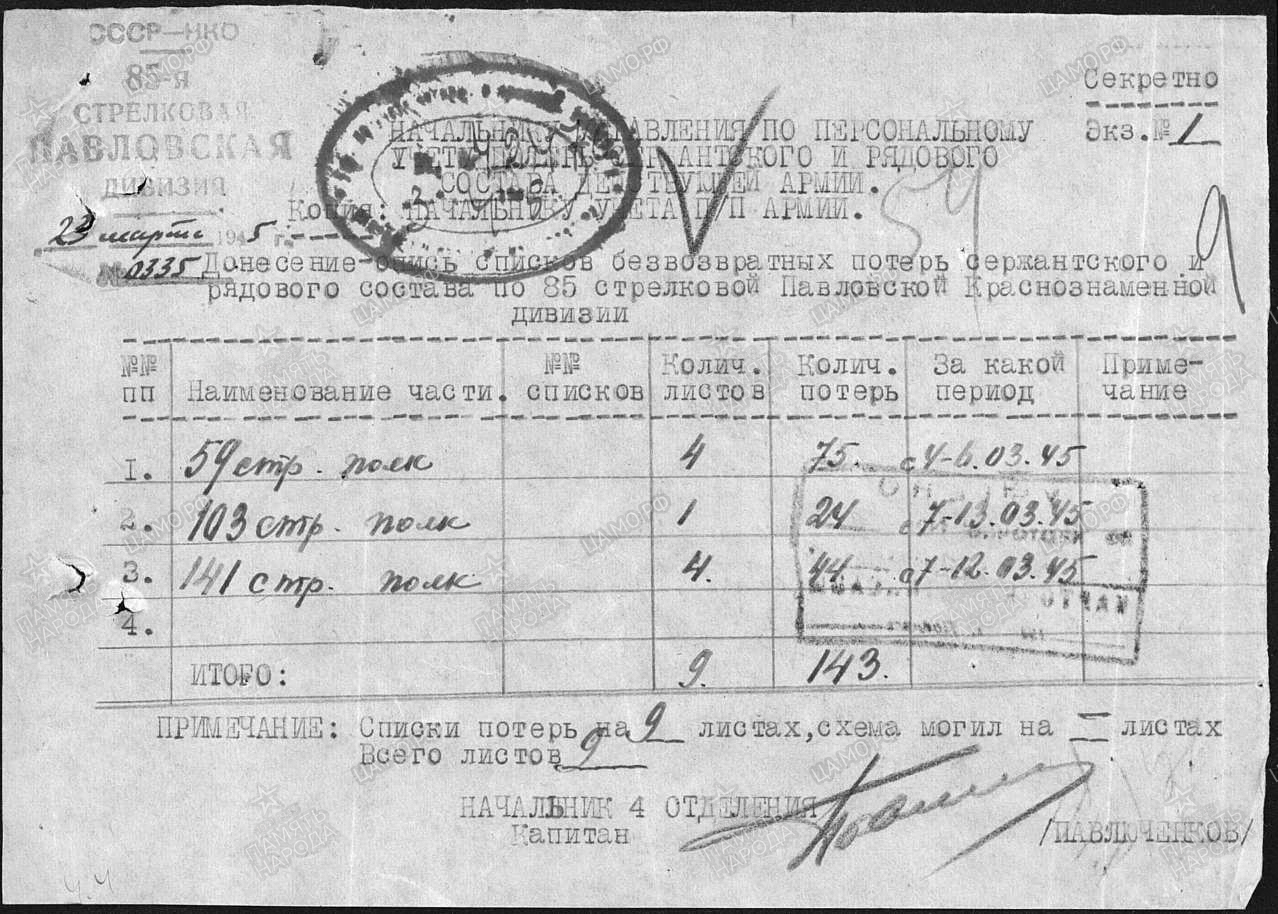 СССР—НКО
85-я
СТРЕЛКОВАЯ
ПАВЛОВСКАЯ
ДИВИЗИЯ
23 марта 1945 г.
№ 0335
Секретно
Экз.№ 1
НАЧАЛЬНИКУ УПРАВЛЕНИЯ ПО ПЕРСОНАЛЬНОМУ
УЧЕТУ ПОТЕРЬ СЕРЖАНТСКОГО И РЯДОВОГО
СОСТАВА ДЕЙСТВУЮЩЕЙ АРМИИ.
Копия: НАЧАЛЬНИКУ УЧЕТА П/П АРМИИ.
54
9
Донесение-опись списков безвозвратных потерь сержантского и
рядового состава по 85 стрелковой Павловской Краснознаменной
дивизии
№№ пп Наименование части. №№ списков Колич. листов Колич. потерь За какой период Приме-чание
1. 59 стр. полк 4 75. с 4-6.03.45
2. 103 стр. полк 1 24 с 7-13.03.45
3. 141 стр. полк 4. 44 с 7-12.03.45
4.
ИТОГО: 9. 143.
ПРИМЕЧАНИЕ: Списки потерь на 9 листах,схема могил на — листах
Всего листов 9
НАЧАЛЬНИК 4 ОТДЕЛЕНИЯ
Капитан /ПАВЛЮЧЕНКОВ/
ПАМЯТЬ НАРОДА
ЦАМО.РФ